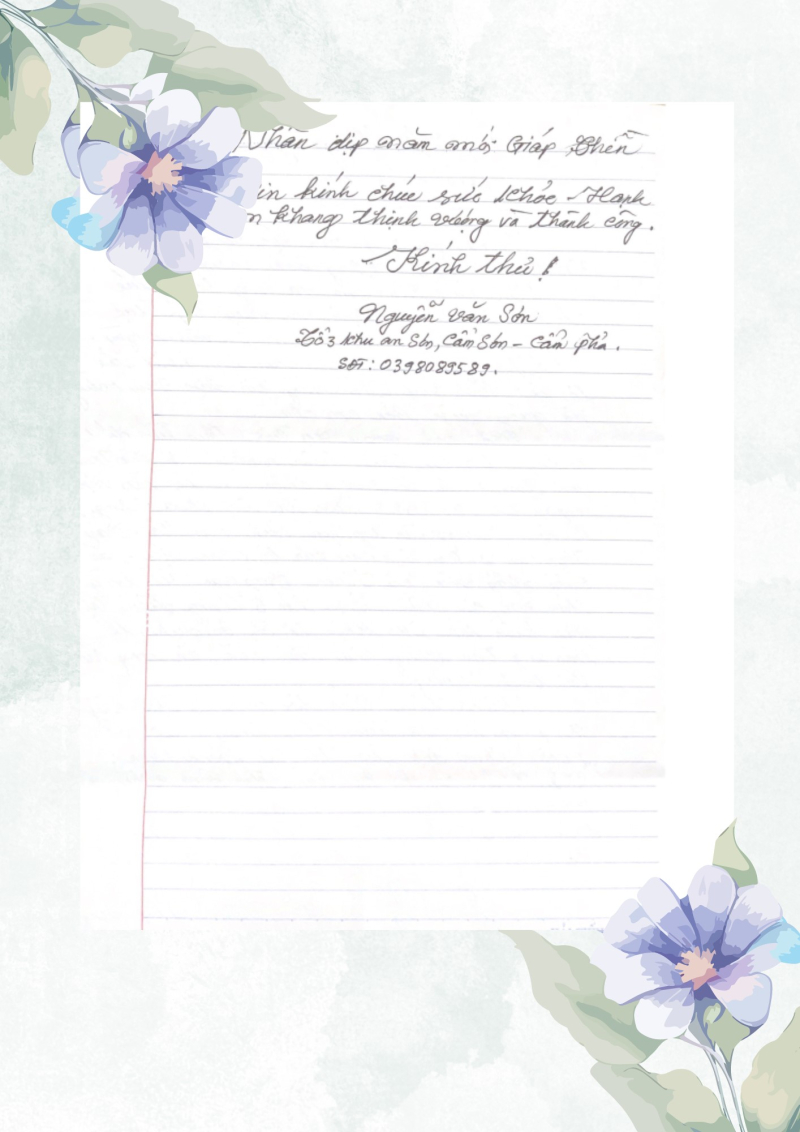 Nhân dịp năm mới Giáp Thìn
in kính chúc sức khỏe - Hạnh
n khang thịnh vượng và thành công.
Kính thư!
Nguyễn Văn Sơn
Tổ 3 khu an Sơn, Cẩm Sơn - Cẩm phả.
SĐT: 0398089589.